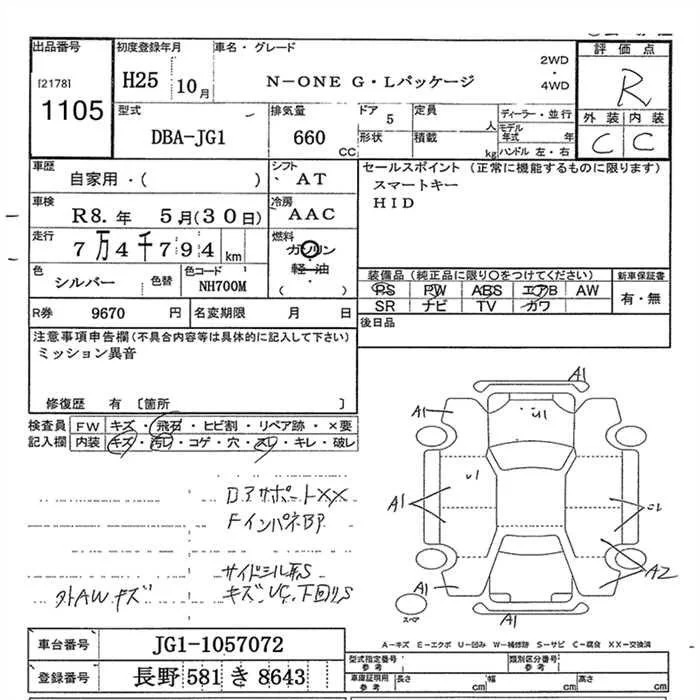 出品番号
[2178]
1105
初度登録年月
H25 10月
車名・グレード
N-ONE G・Lパッケージ
2WD
・
4WD
評価点
R
外装 内装
C C
型式
DBA-JG1
排気量
660
CC
ドア 5
形状
定員 人
積載 kg
ディーラー・並行
モデル年式 年
ハンドル 左・右
車歴
自家用・( )
シフト
AT
セールスポイント (正常に機能するものに限ります)
スマートキー
HID
車検
R8.年 5月(30日)
冷房
AAC
走行
7万4千794 km
燃料
ガソリン
軽・油
( )
色
シルバー
色替
色コード
NH700M
装備品(純正品に限り○をつけてください)
PS PW ABS エアB AW
SR ナビ TV カワ
新車保証書
有・無
R券 9670 円
名変期限 月 日
後日品
注意事項申告欄(不具合内容等は具体的に記入して下さい)
ミッション異音
修復歴 有 [箇所 ]
検査員 FW キズ・飛石・ヒビ割・リペア跡・×要
記入欄 内装 キズ・汚レ・コゲ・穴・スレ・キレ・破レ
ロアサポートXX
FインパネBP
サイドシル系S
外AWキズ
キズ、UC、下回りS
A1
A1
U1
U1
A1
A2
A1
A1
スペア
A-キズ E-エクボ U-凹み W-補修跡 S-サビ C-腐食 XX-交換済
車台番号 JG1-1057072
登録番号 長野 581 き 8643
型式指定番号
参考
類別区分番号
参考
車庫証明用
参考
長さ cm
幅 cm
高さ cm